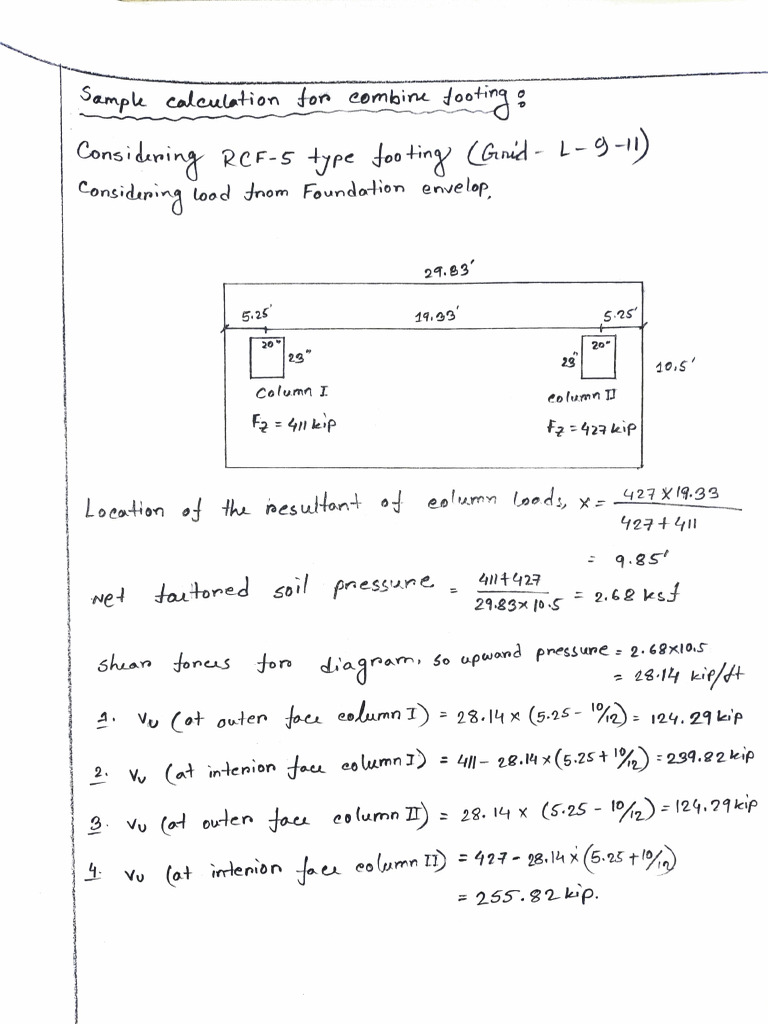 Sample calculation for combine footing:
Considering RCF-5 type footing (Grid - L-9-11)
Considering load from Foundation envelop,
29.83'
5.25' 19.33' 5.25'
20" 23" 23" 20" 10.5'
Column I column II
Fz = 411 kip Fz = 427 kip
Location of the resultant of column loads, x = 427 X 19.33 / 427 + 411
= 9.85'
Net factored soil pressure = 411+427 / 29.83 x 10.5 = 2.68 ksf
Shear forces for diagram, so upward pressure = 2.68x10.5
= 28.14 kip/ft
1. Vu (at outer face column I) = 28.14 x (5.25 - 10/12) = 124.29 kip
2. Vu (at interior face column I) = 411 - 28.14 x (5.25 + 10/12) = 239.82 kip
3. Vu (at outer face column II) = 28.14 x (5.25 - 10/12) = 124.29 kip
4. Vu (at interior face column II) = 427 - 28.14 x (5.25 + 10/12)
= 255.82 kip.